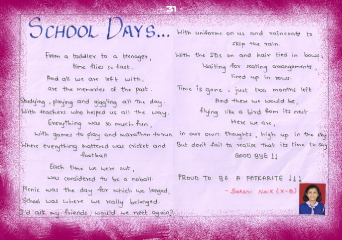 31
SCHOOL DAYS...
From a toddler to a teenager,
time flies so fast.
And all we are left with,
are the memories of the past.
Studying, playing and giggling all the day.
With teachers who helped us all the way.
Everything was so much fun,
with games to play and marathon to run
Where everything mattered was cricket and
football
Each time we were out,
was considered to be a noball
Picnic was the day for which we longed,
School was where we really belonged.
I'd ask my friends, would we meet again?
With uniforms on us and raincoats to
skip the rain.
With the IDs on and hair tied in bows,
Waiting for seating arrangements,
tired up in rows.
Time is gone, just two months left
And there we would be,
flying like a bird from its nest
Here we are,
in our own thoughts, high up in the sky
But don't fail to realise that its time to say
GOOD BYE !!
PROUD TO BE A PETERITE !!!
- Naik (X-B)